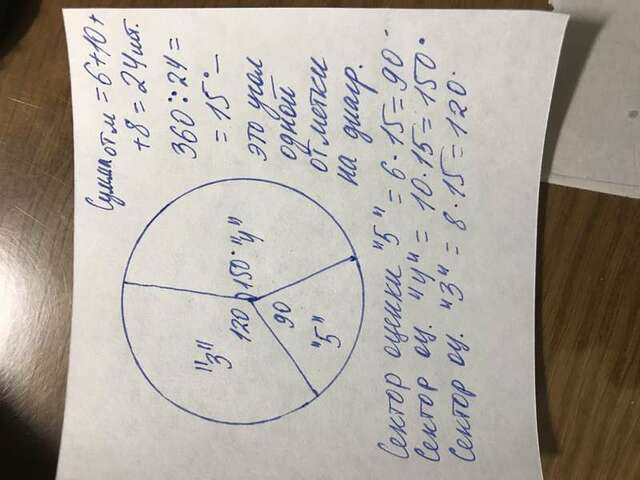 Сумма отм = 6+10+
+8 = 24 шт.
360 : 24 =
= 15° –
это угол
одной
отметки
на диагр.
"3"
120
150° "4"
90
"5"
Сектор оценки "5" = 6·15=90°
Сектор оц. "4" = 10·15=150°
Сектор оц. "3" = 8·15=120°